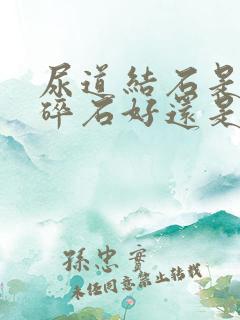 尿道結石是
碎石好還是
孫忠實
未經同意禁止轉載